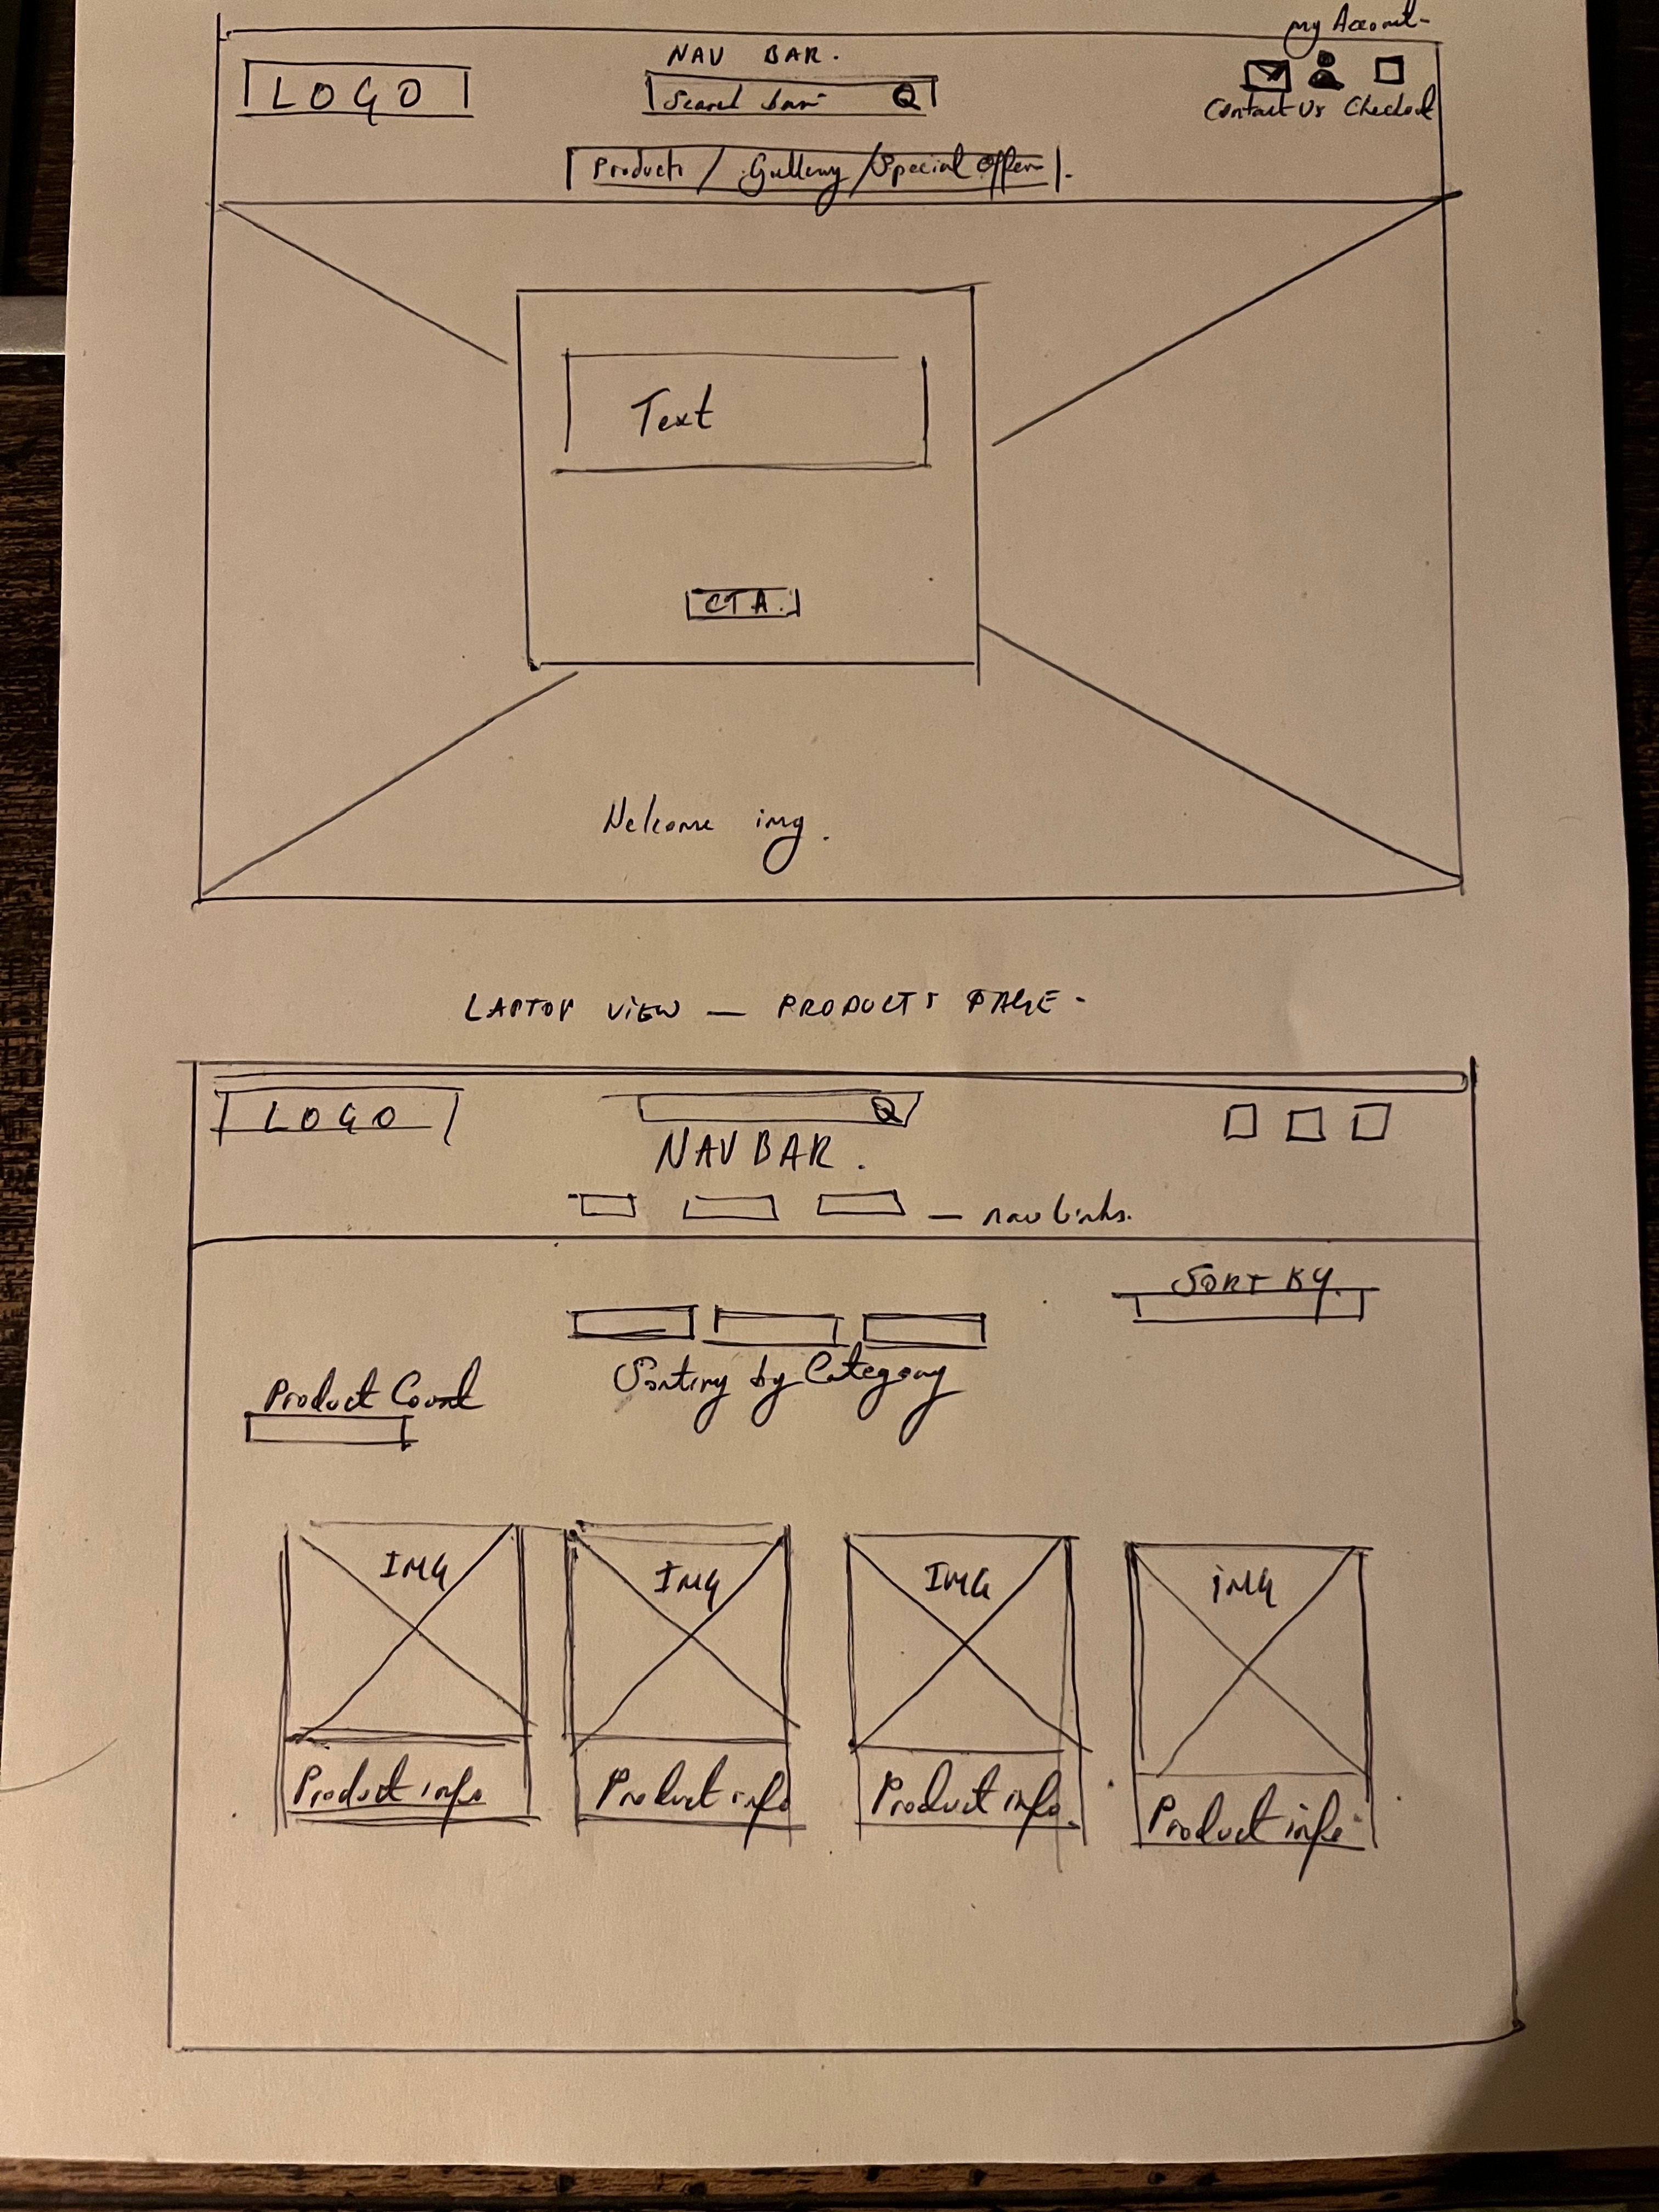 my Account-
NAV BAR.
LOGO
Search bar
Contact Us Checkout
Products / Gallery / Special Offers
Text
CTA.
Welcome img.
LAPTOP VIEW — PRODUCTS PAGE-
LOGO
NAV BAR.
— nav links.
SORT BY.
Sorting by Category
Product Count
IMG IMG IMG iMG
Product info Product info Product info Product info